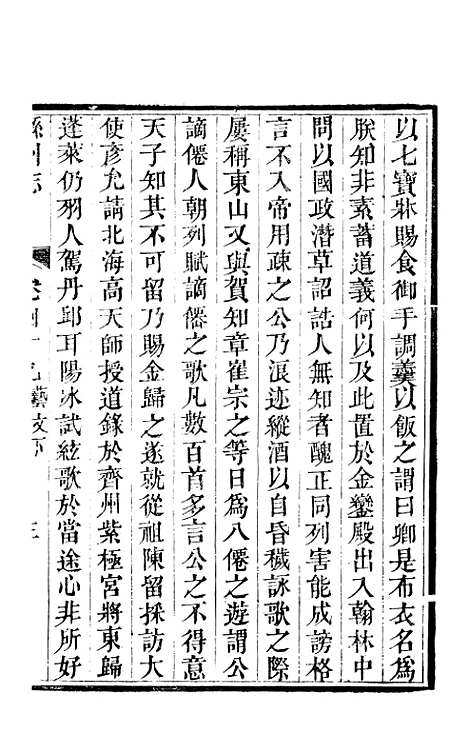 以七寶牀賜食御手調羹以飯之謂曰卿是布衣名爲
朕知非素蓄道義何以及此置於金鑾殿出入翰林中
問以國政潛草詔誥人無知者醜正同列害能成謗格
言不入帝用疎之公乃浪迹縱酒以自昏穢詠歌之際
屢稱東山又與賀知章崔宗之等日爲八僊之遊謂公
謫僊人朝列賦謫僊之歌凡數百首多言公之不得意
天子知其不可留乃賜金歸之遂就從祖陳留採訪大
使彦允請北海高天師授道籙於齊州紫極宮將東歸
蓬萊仍羽人駕丹邱耳陽冰試絃歌於當途心非所好
緜州志 卷四十九藝文 三